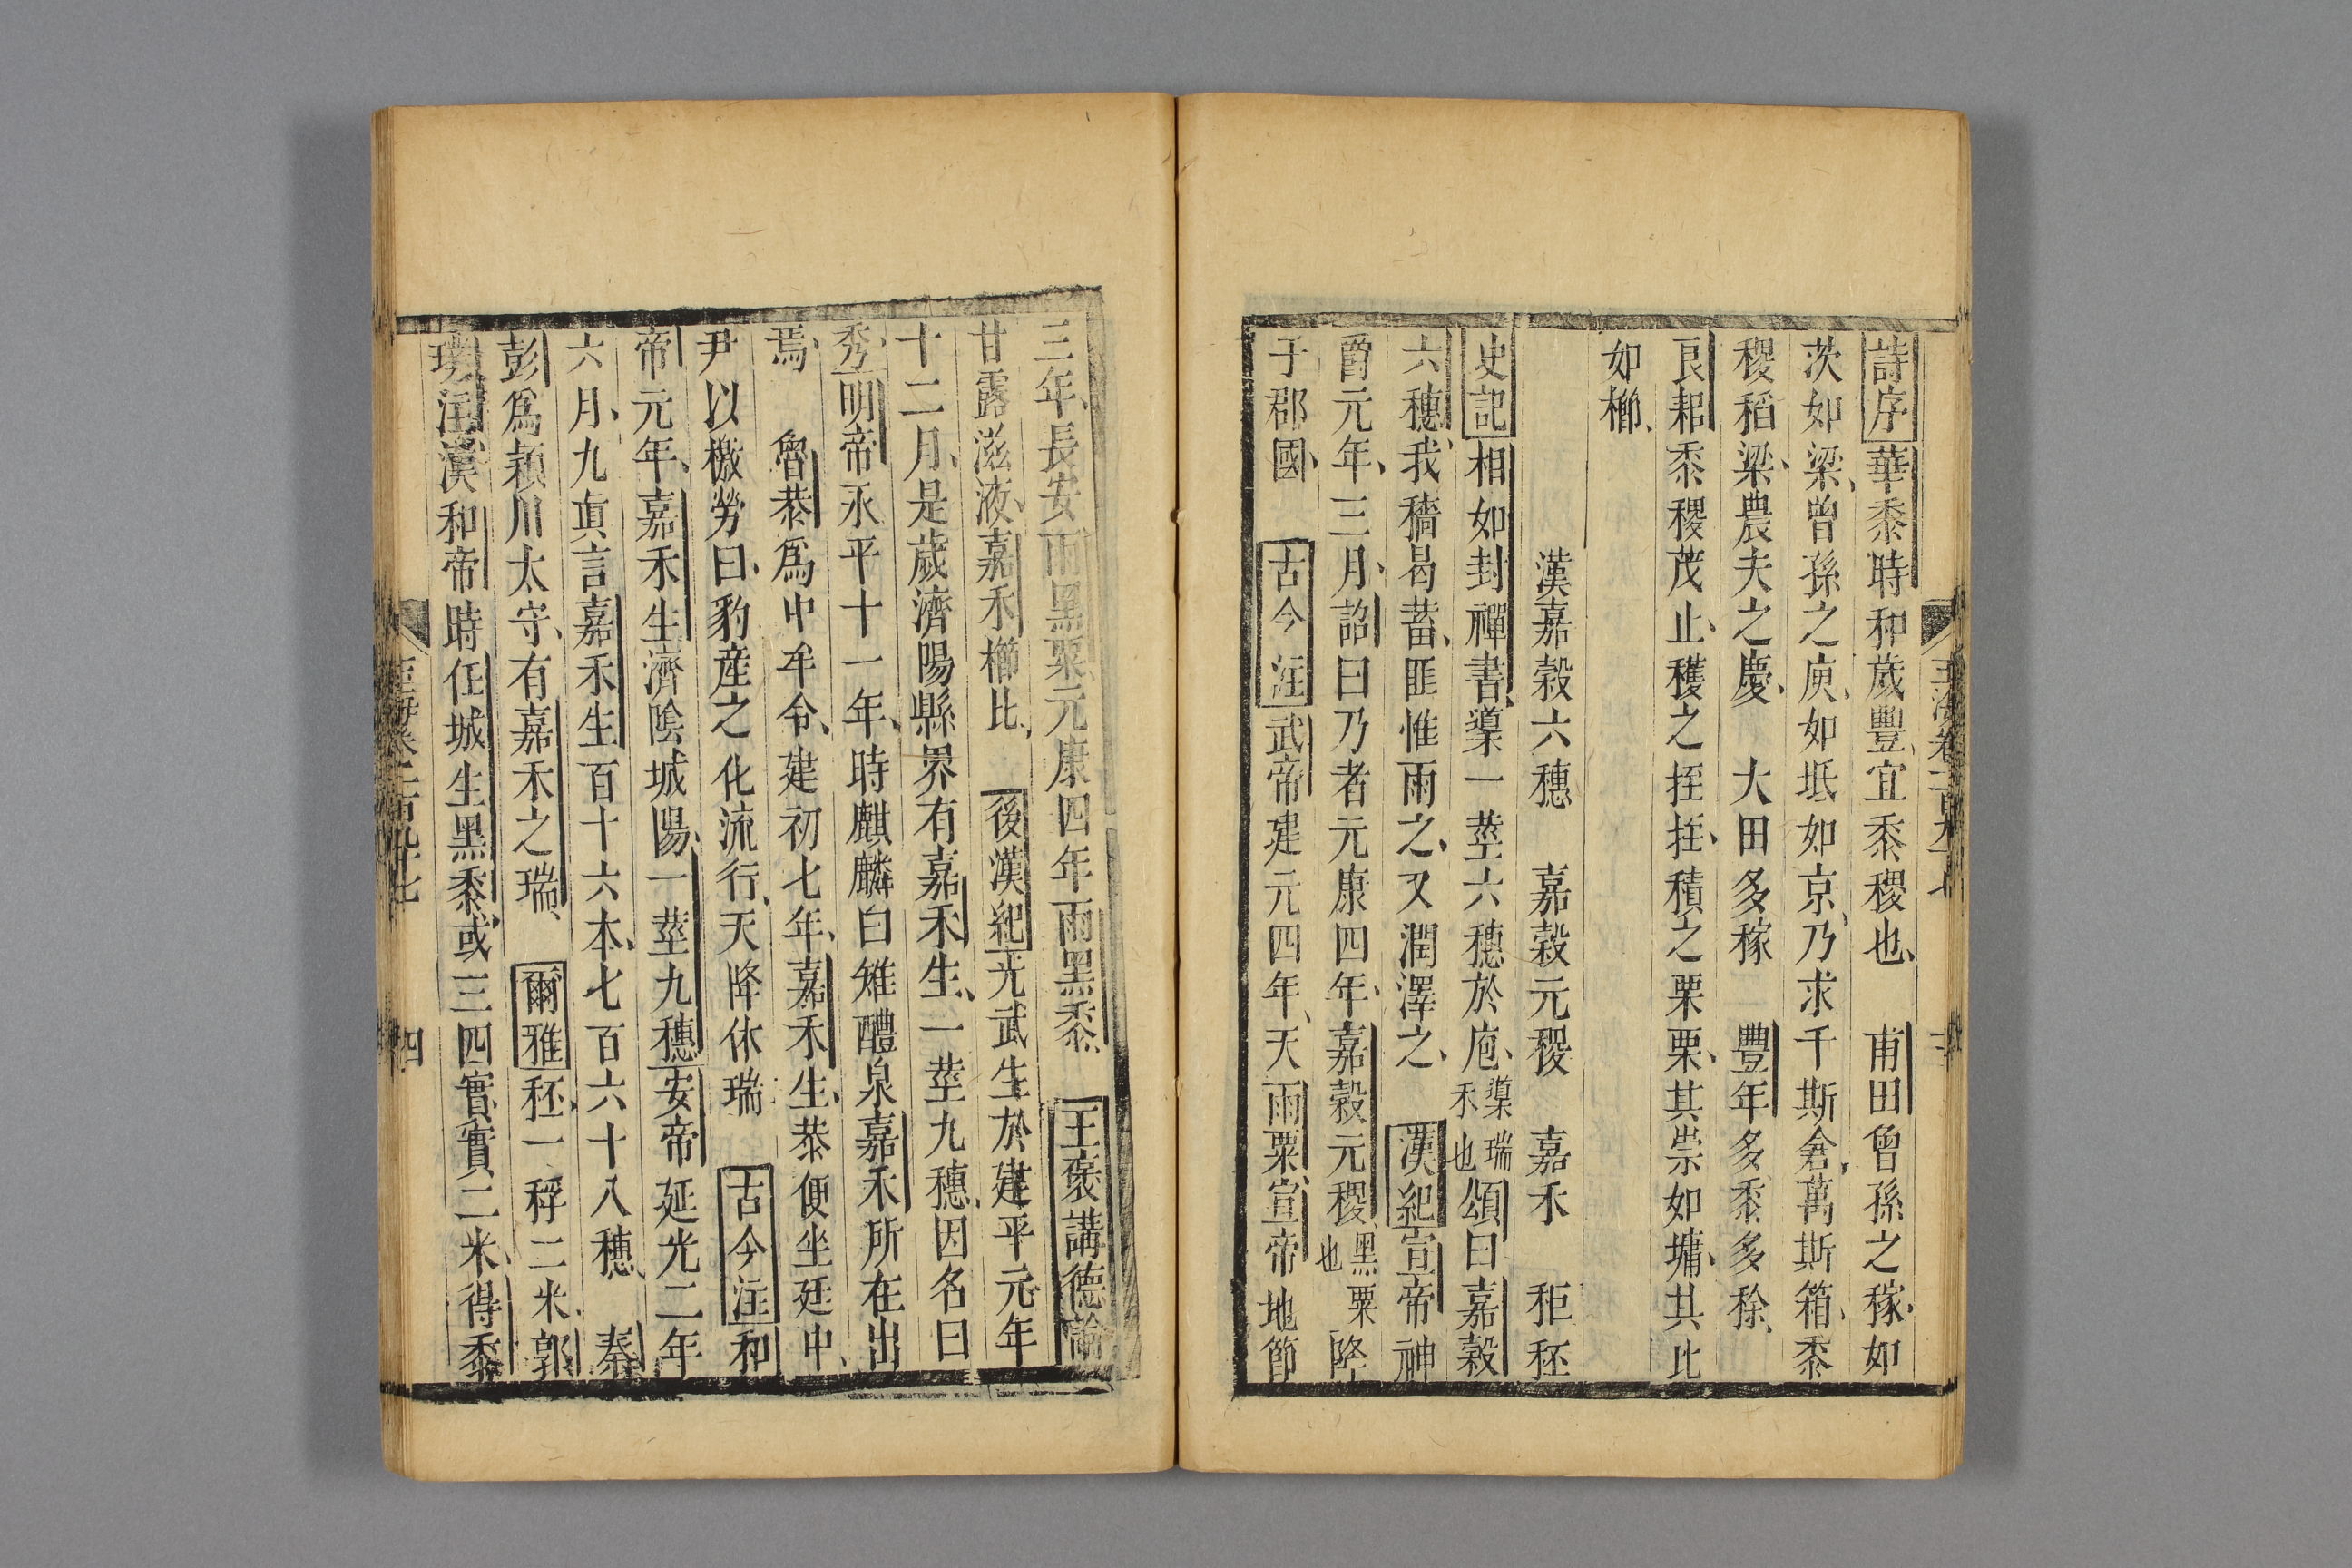 詩序華黍時和歲豐宜黍稷也 甫田曾孫之稼如
茨如梁曾孫之庾如坻如京乃求千斯倉萬斯箱黍
稷稻梁農夫之慶 大田多稼 豐年多黍多稌
良耜黍稷茂止穫之挃挃積之栗栗其崇如墉其比
如櫛
漢嘉穀六穗 嘉穀元稷 嘉禾 秬秠
史記相如封禪書䆃一莖六穗於庖䆃瑞禾也頌曰嘉穀
六穗我穡曷蓄匪惟雨之又潤澤之 漢紀宣帝神
爵元年三月詔曰乃者元康四年嘉穀元稷黑粟也降
于郡國 古今注武帝建元四年天雨粟宣帝地節
三年長安雨黑粟元康四年雨黑黍 王褒講德論
甘露滋液嘉禾櫛比 後漢紀光武生於建平元年
十二月是歲濟陽縣界有嘉禾生一莖九穗因名曰
秀明帝永平十一年時麒麟白雉醴泉嘉禾所在出
焉 魯恭爲中牟令建初七年嘉禾生恭便坐廷中
尹以檄勞曰豹產之化流行天降休瑞 古今注和
帝元年嘉禾生濟陰城陽一莖九穗安帝延光二年
六月九真言嘉禾生百十六本七百六十八穗 秦
彭爲潁川太守有嘉禾之瑞 爾雅秠一稃二米郭
璞注漢和帝時任城生黑黍或三四實實二米得黍
玉海卷一百九十七
四